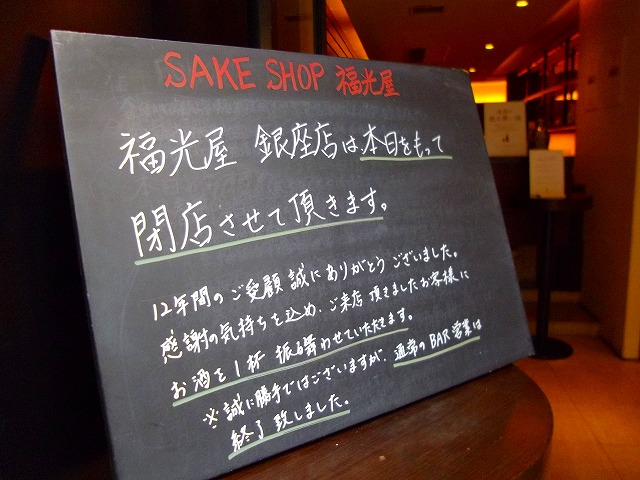 SAKE SHOP 福光屋
福光屋 銀座店は本日をもって
閉店させて頂きます。
12年間のご愛顧 誠にありがとうございました。
感謝の気持ちを込め、ご来店頂きましたお客様に
お酒を1杯 振る舞わせていただきます。
※誠に勝手ではございますが、通常のBAR営業は
終了致しました。